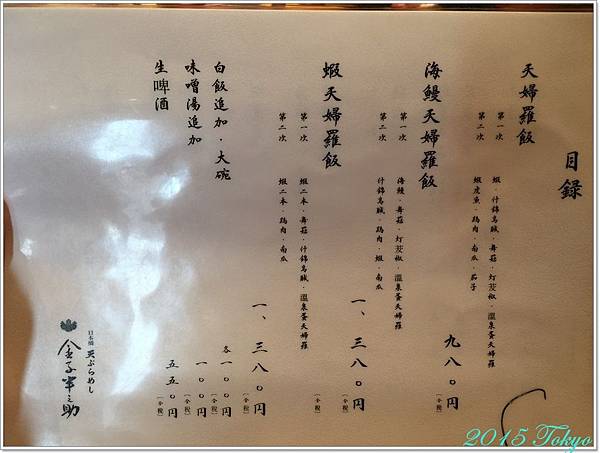 目錄
天婦羅飯
第一次 蝦・什錦烏賊・舞菇・灯茫椒・溫泉蛋天婦羅
第二次 蝦虎魚・鷄肉・南瓜・茄子
九八〇円(令税)
海鰻天婦羅飯
第一次 海鰻・舞菇・灯茫椒・溫泉蛋天婦羅
第二次 什錦烏賊・鷄肉・蝦・南瓜
一、三八〇円(令税)
蝦天婦羅飯
第一次 蝦二本・舞菇・什錦烏賊・溫泉蛋天婦羅
第二次 蝦二本・鷄肉・南瓜
一、三八〇円(令税)
白飯追加・大碗 各一〇〇円(令税)
味噌湯追加 一〇〇円(令税)
生啤酒 五五〇円(令税)
日本橋
天ぷらめし
金子半之助
2015 Tokyo